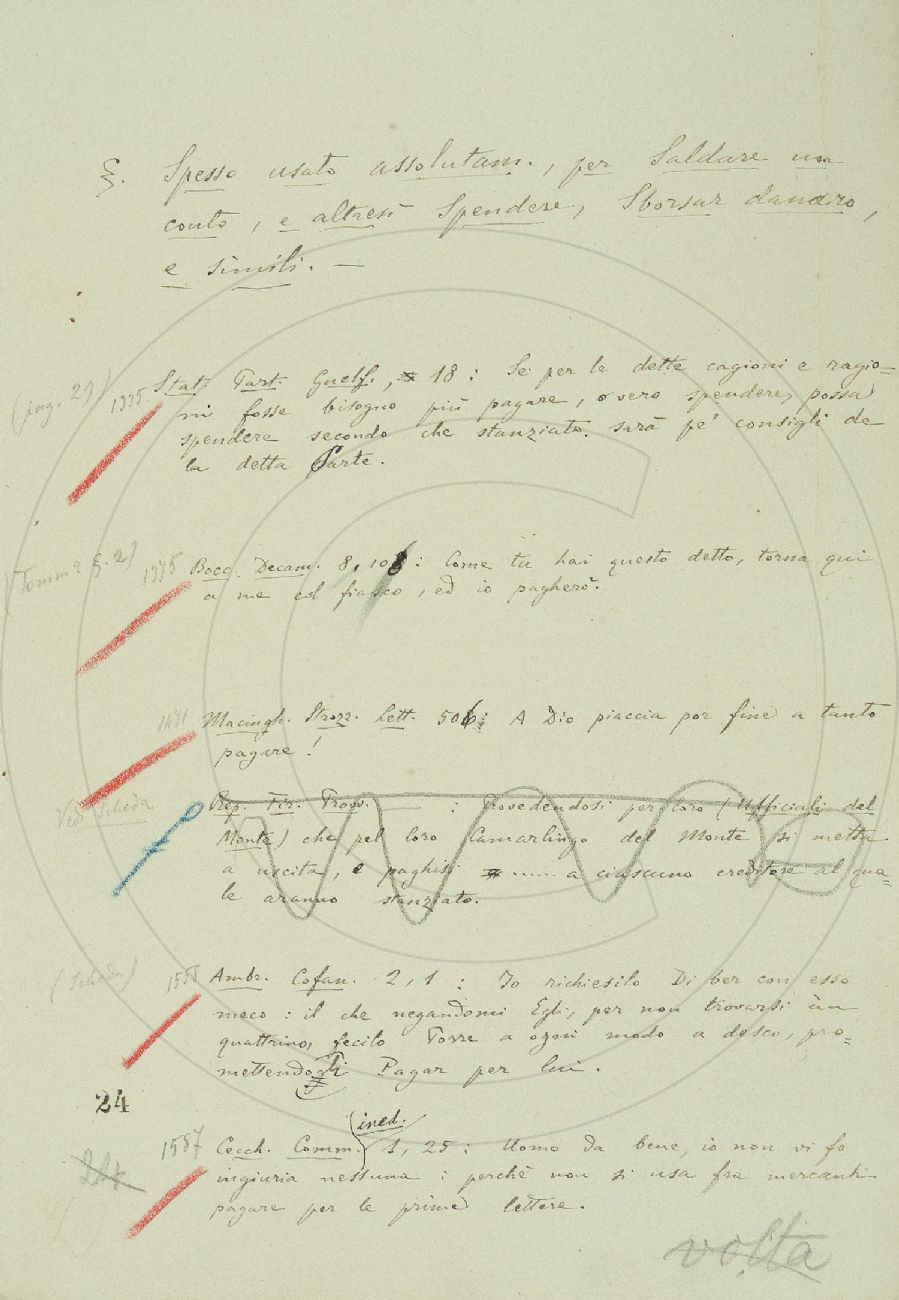 §. Spesso usato assolutam., per Saldare un
conto, e altresì Spendere, Sborsar danaro,
e simili. —
(pag. 29) 1335. Stat. Part. Guelf., 18: Se per le dette cagioni e ragio=
ni fosse bisogno più pagare, overo spendere, possa
spendere secondo che stanziato sarà pe' consigli de
la detta Parte.
(Tomm? §. 2) 1335 Bocc. Decam. 8, 10: Come tu hai questo detto, torna qui
a me col fiasco, ed io pagherò.
Macingh. Strozz. Lett. 506: A Dio piaccia por fine a tanto
pagare!
Ved Scheda Rep. Fir. Provv. : Provedendosi per loro (Ufficiali del
Monte) che pel loro Camarlingo del Monte si metta
a uscita, e paghisi ...... a ciascuno creditore al qua=
le aranno stanziato.
(Scheda) 1558 Ambr. Cofan. 2, 1: Io richiesilo Di ber con esso
meco: il che negandomi Egli, per non trovarsi un
quattrino, fecilo Porre a ogni modo a desco, pro=
mettendogli Pagar per lui.
24
ined.
1587 Cecch. Comm. 1, 25: Uomo da bene, io non vi fo
ingiuria nessuna: perchè non si usa fra mercanti
pagare per le prime lettere.
volta